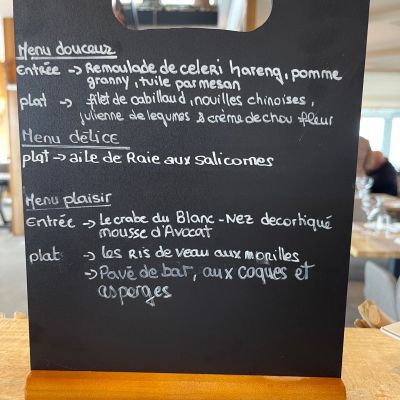 Menu douceur
Entrée -> Remoulade de celeri hareng, pomme
granny, tuile parmesan
plat -> filet de cabillaud, nouilles chinoises,
julienne de legumes & crème de chou-fleur
Menu délice
plat -> aile de Raie aux salicornes
Menu plaisir
Entrée -> Le crabe du Blanc-Nez decortiqué
mousse d'Avocat
plat -> les Ris de veau aux morilles
-> Pavé de bar, aux coques et
asperges